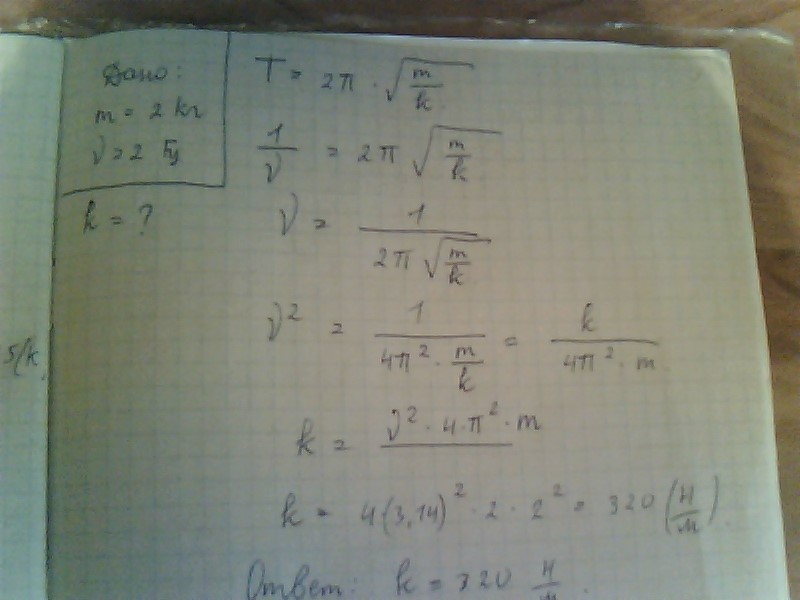 Дано:
m = 2 кг
ν = 2 Гц
k = ?
T = 2π · √(m/k)
1/ν = 2π √(m/k)
ν = 1/(2π √(m/k))
ν² = 1/(4π² · m/k) = k/(4π² · m)
k = ν² · 4 · π² · m
k = 4(3,14)² · 2 · 2² = 320 (Н/м).
Ответ: k = 320 Н/м.
5/k